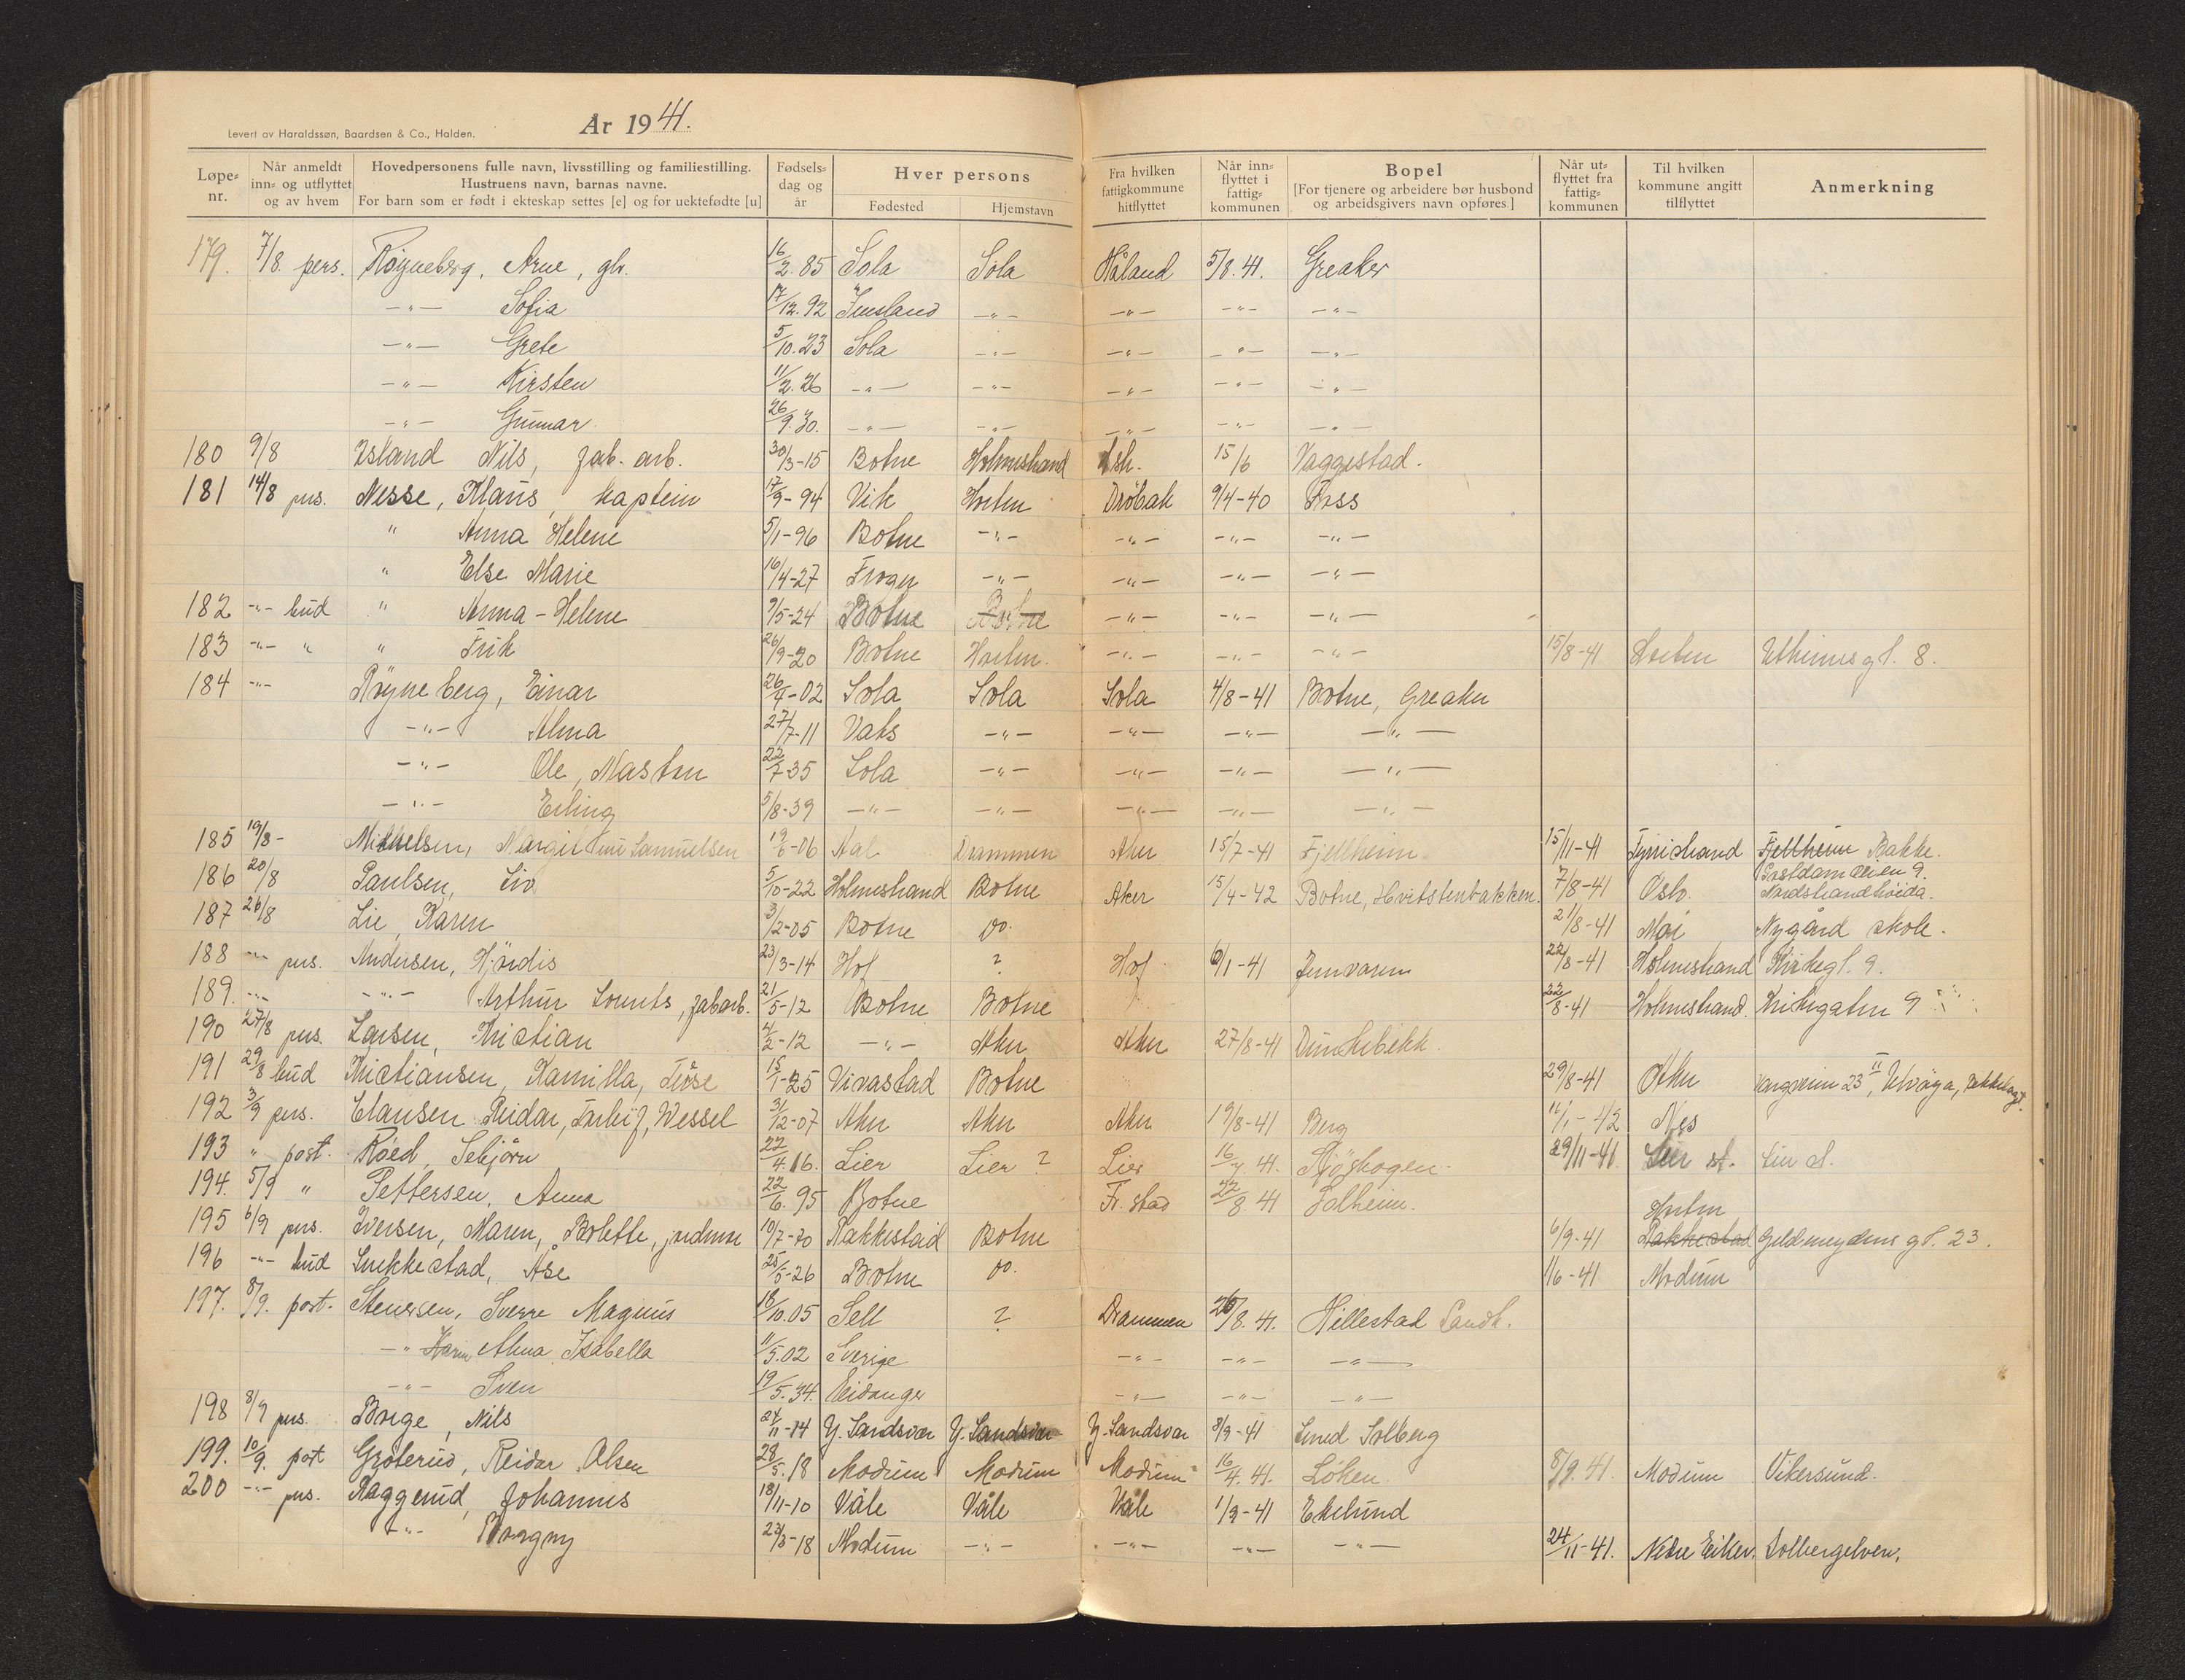 Levert av Haraldssøn, Baardsen & Co., Halden.
År 1941.
Løpenr. | Når anmeldt inn- og utflyttet og av hvem | Hovedpersonens fulle navn, livsstilling og familiestilling. Hustruens navn, barnas navne. For barn som er født i ekteskap settes [e] og for uektefødte [u] | Fødselsdag og år | Hver persons Fødested | Hjemstavn | Fra hvilken fattigkommune hitflyttet | Når innflyttet i fattigkommunen | Bopel [For tjenere og arbeidere bør husbond og arbeidsgivers navn opføres] | Når utflyttet fra fattigkommunen | Til hvilken kommune angitt tilflyttet | Anmerkning
179. 7/8. pers. Røyneberg, Arne, gbr. 16/2.85 Sola Sola Håland 5/8.41. Greaker
-"- Sofia 17/12.92 -"- -"- -"- -"-
-"- Grete 5/10.23 Sola -"- -"- -"- -"-
-"- Kirsten 11/2.26 -"- -"- -"- -"- -"-
-"- Gunnar 26/9.30. -"- -"- -"- -"- -"-
180 9/8 Island Nils, fab. arb. 30/3-15 Botne Holmestrand 15/6 Vaggestad.
181 14/8 pers. Nesse, Klaus, kaptein 17/9-94 Vik Horten Drøbak 9/4-40 Foss
" Anna Helene 5/1-96 Botne -"- -"- -"- -"-
" Else Marie 16/4-27 Frogn -"- -"- -"- -"-
182 -"- bud " Anna-Helene 9/5-24 Botne Botne -"- -"- -"-
183 -"- " " Erik 26/9-20 Botne Horten. -"- -"- -"- 15/8-41 Horten 8.
184 -"- Røyneberg, Einar 26/4-02 Sola Sola Sola 4/8-41 Botne, Greaker
-"- Alma 27/7-11 Vats -"- -"- -"- -"-
-"- Ole, Marten 22/7-35 Sola -"- -"- -"- -"-
-"- Erling 5/8-39 -"- -"- -"- -"- -"-
185 19/8- Mikkelsen, Margit Samuelsen 19/6-06 Aal Drammen Aker 15/7-41 Fjellheim. 15/11-41 Tyristrand Fjellheim Bakke.
186 20/8 Paulsen, Liv 5/10-22 Holmestrand Botne Aker 15/4-42 Botne, Hvitstenbakken. 7/8-41 Oslo. 9. Nordstrandhøida.
187 26/8 Lie, Karen 3/2-05 Botne do. 21/8-41 Moi Nygård skole.
188 -"- pers. Andersen, Hjørdis 23/3-14 Hof ? Hof 6/1-41 Jernvaren 22/8-41 Holmestrand Kirkegt. 9.
189. -"- -"- Arthur Lorents, fabarb. 21/5-12 Botne Botne 22/8-41 Holmestrand. Kirkegaten 9
190 27/8 pers. Larsen, Kristian 4/2-12 -"- Aker Aker 27/8-41 Dunkebekk.
191 29/8 bud Kristiansen, Kamilla, Tløse 15/1-25 Vivastad Botne 29/8-41 Aker 23 II, Ulvøya,
192 3/9 pers. Clausen Reidar, Torleif, Wessel 31/12-07 Aker Aker Aker 19/8-41 Berg 16/1-42 Nes
193 " post. Røed, Sebjørn 22/4.16. Lier Lier ? Lier 16/4 41. Skjøskogen. 29/11-41. Lier st. Lier st.
194. 5/9 " Pettersen, Anna 22/6.95 Botne Fr.stad 22/8 41 Solheim.
195 6/9 pers. Iversen, Maren, Bolette, jordmor 10/7-70 Rakkestad Botne 6/9-41 Rakkestad Horten Geldmeydens gt. 23.
196 -"- bud Snekkestad, Åse 25/5-26 Botne do. 1/6-41 Modum
197. 8/9. post. Stenersen, Sverre Magnus 18/10.05 Sell ? Drammen 26/8.41. Hillestad Landh.
-"- Karin Alma Isabella 11/5.02 Sverige -"- -"- -"-
-"- Sven 19/5.34. Eidanger -"- -"- -"-
198 8/9 pers. Borge, Nils 24/11-14 Y. Sandsvær Y. Sandsvær Y. Sandsvær 8/9-41 Solberg
199. 10/9. post Grøterud, Reidar Olsen 28/5.18 Modum Modum Modum 16/4.41. Løken. 8/9.41. Modum Vikersund.
200 -"- pers. Raggerud, Johannes 18/11-10 Våle Våle Våle 1/9-41 Ekelund
-"- Borgny 23/3-18 Modum -"- -"- -"- -"- 24/11-41. Nedre Eiker. Solbergelven.